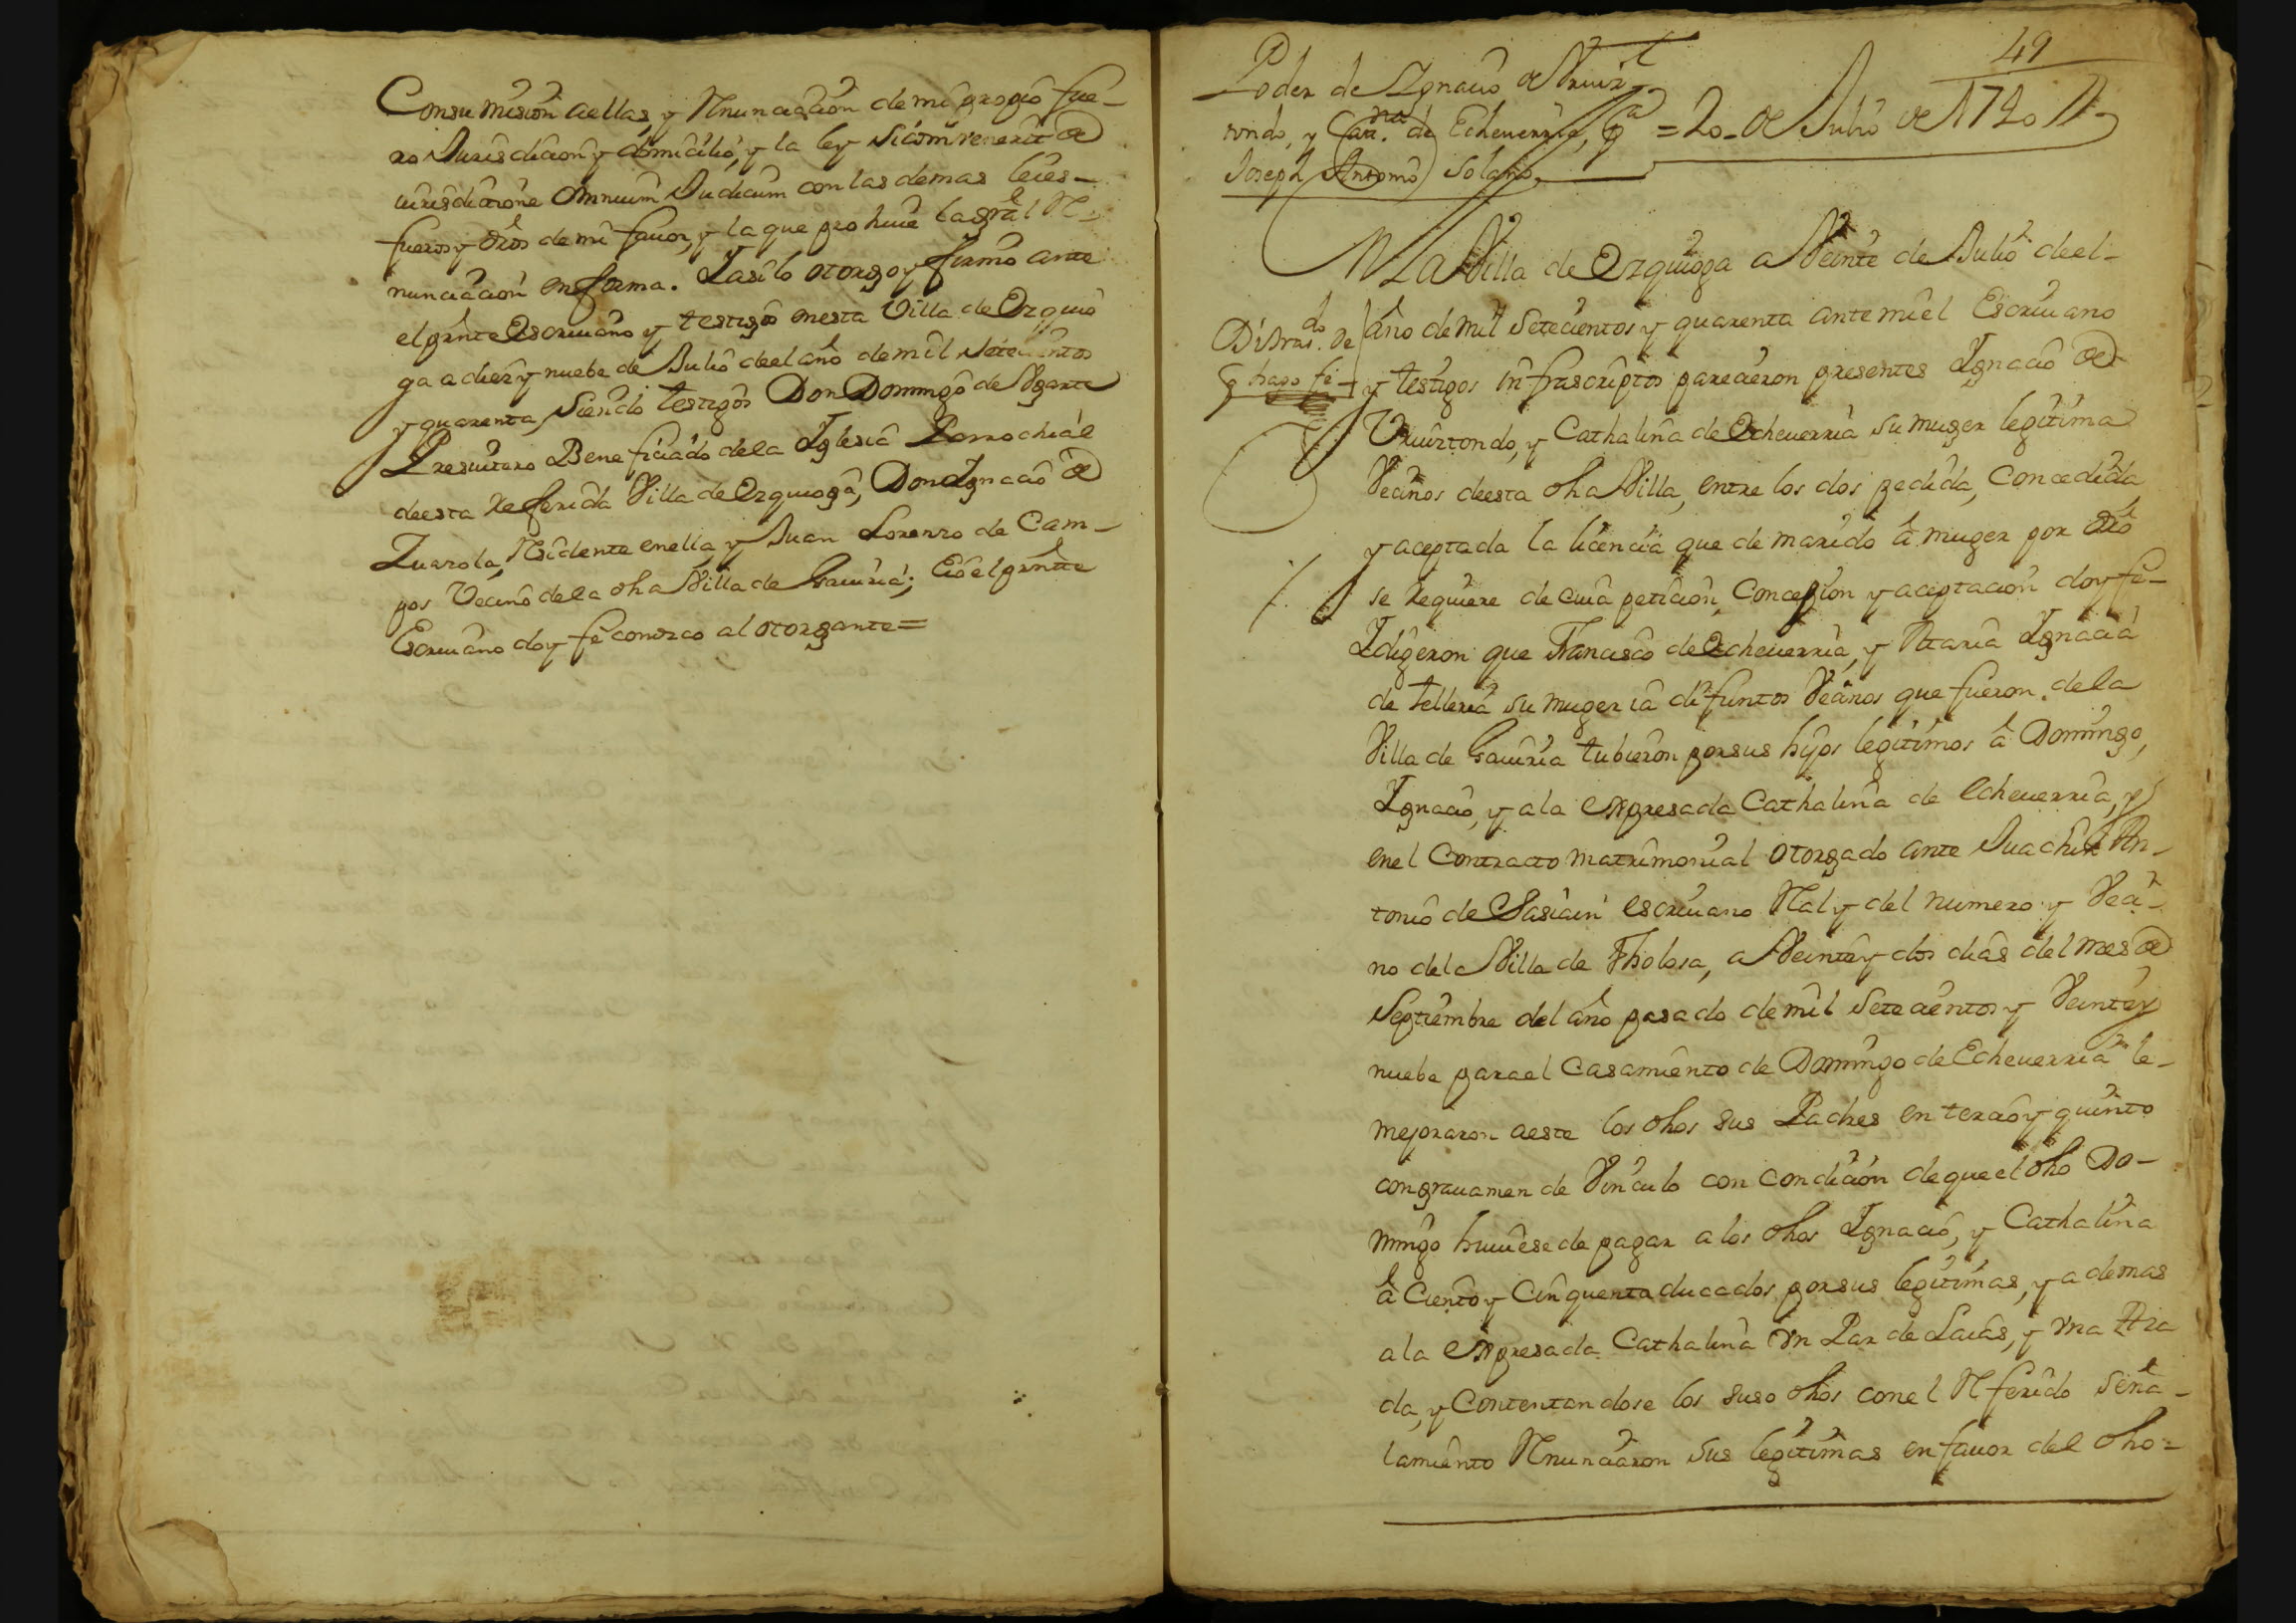 Consumision aellas, y Rnunciacion de mi propio fue-
ro Jurisdicion y domicilio, y la ley Siconvenerit de
iurisdicione Omnium Judicum con las demas leies-
fueros y dros de mi fauor, y la que prohiue la gral R-
nunciacion en forma. Iasi lo otorgo y firmo ante
el prnte Escriuano y testigos en esta Villa de Ezquio
ga a diez y nuebe de Julio de el año de mil Setecientos
y quarenta, Siendo testigos Don Domingo de Ugarte
Presuitero Beneficiado de la Iglesia Parrochial
de esta referida Villa de Ezquioga, Don Ignacio de
Zuarola, Rsidente en ella, y Juan Lorenzo de Cam-
pos Vecino de la dha Villa de Gauiria; Eio el prnte
Escriuano doy fe conozco al otorgante=
49
Poder de Ignacio de Vruir
tondo, y Cata.na de Echeuerria, pa = 20- de Julio de 1740
Joseph Antonio Solano,
En La Villa de Ezquioga a Veinte de Julio de el-
año de mil Setecientos y quarenta ante mi el Escriuano
do
Di tras. de
q hago fe
y testigos infrascriptos parecieron presentes Ignacio de
Vruirtondo, y Cathalina de Echeuerria su muger legitima
Vecinos de esta dha Villa, entre los dos pedida, Concedida,
y aceptada la licencia que de marido â muger por dro
se requiere de cuia peticion, Concesion y aceptacion doy fe-
I digeron que Francisco de Echeuerria, y Maria Ignacia
de Telleria su muger ia difuntos Vecinos que fueron de la
Villa de Gauiria tubieron por sus hijos legitimos â Domingo,
Ignacio, y a la expresada Cathalina de Echeuerria, y
en el Contracto matrimonial otorgado ante Juachin An-
tonio de Sasiain escriuano Ral y del numero y Veci-
no dela Villa de Tholosa, a Veinte y dos dias del mes de
Septiembre del año pasado de mil Setecientos y Veinte y
nuebe para el Casamiento de Domingo de Echeuerria le-
mejoraron a este los dhos sus Padres en tercio y quinto
con grauamen de Vinculo con condicion de que el dho Do-
mingo huuiese de pagar a los dhos Ignacio, y Cathalina
â Ciento y Cinquenta ducados por sus legitimas, y ademas
a la expresada Cathalina vn Par de Saias, y vna Aza
da, y Contentandose los suso dhos con el Rferido seña-
lamiento Rnunciaron sus legitimas en fauor del dho=